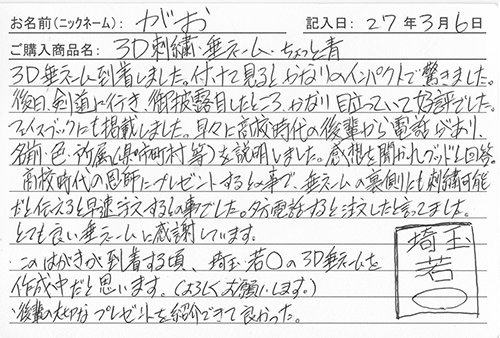 お名前(ニックネーム): がお 記入日: 27年3月6日
ご購入商品名: 3D刺繍・垂ネーム・ちょっと青
3D垂ネーム到着しました。付けて見るとかなりのインパクトで驚きました。
後日、剣道に行き、御披露目したところ、かなり目立っていて好評でした。
フェイスブックにも掲載しました。早々に高校時代の後輩から電話があり、
名前・色・所属(県・市町村等)を説明しました。感想を聞かれグッドと回答。
高校時代の恩師にプレゼントするとの事で、垂ネームの裏側にも刺繍可能
だと伝えると早速注文するとの事でした。夕方電話すると注文したと言ってました。
とても良い垂ネームに感謝しています。
・このはがきが到着する頃、埼玉・若〇の3D垂ネームを
作成中だと思います。(よろしくお願いします。)
・後輩の大切なプレゼントを紹介できて良かった。
埼玉
若
〇